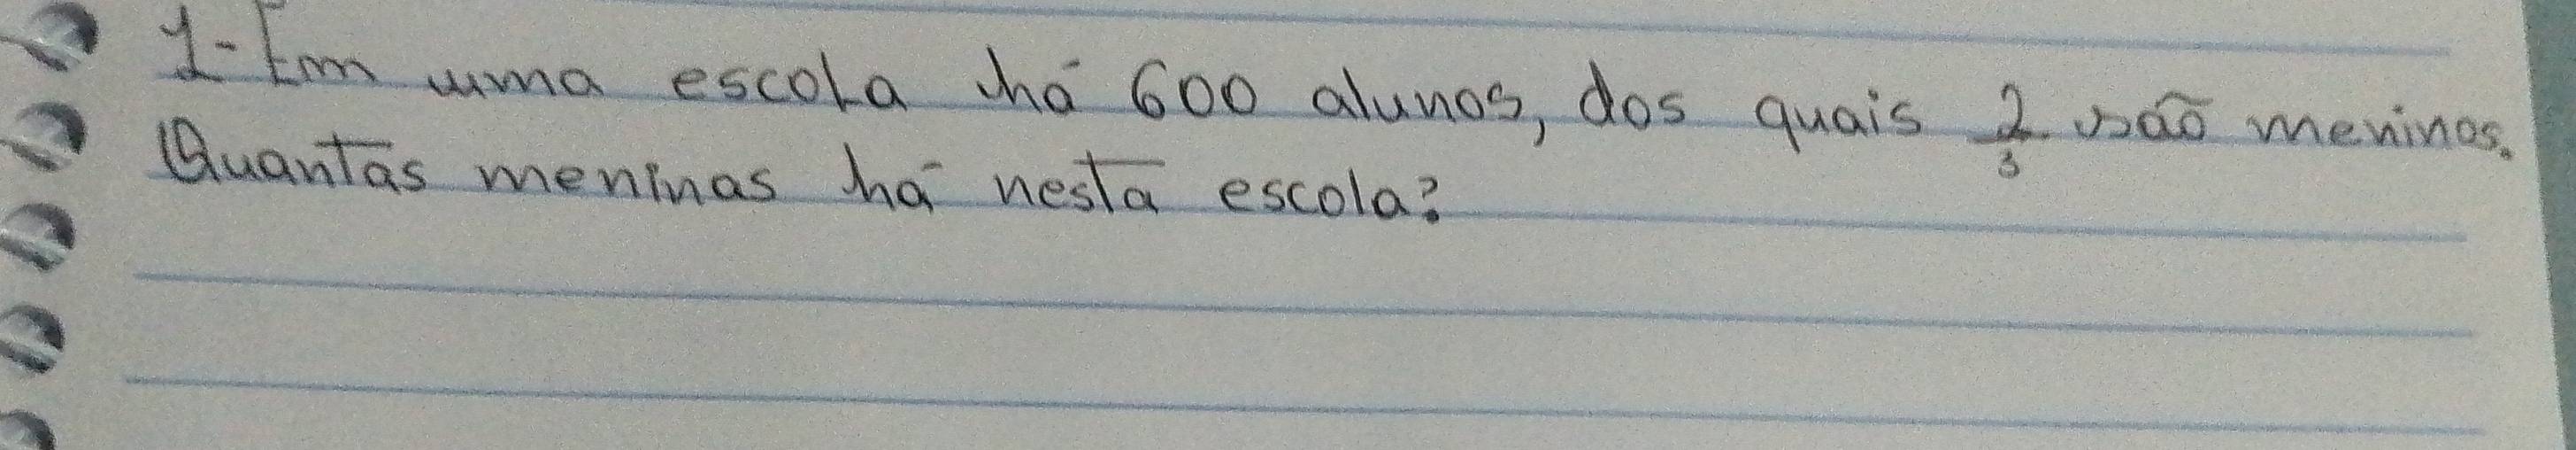 1-Em uma escola há 600 alunos, dos quais 2/3 são meninos.
Quantas meninas há nesta escola?